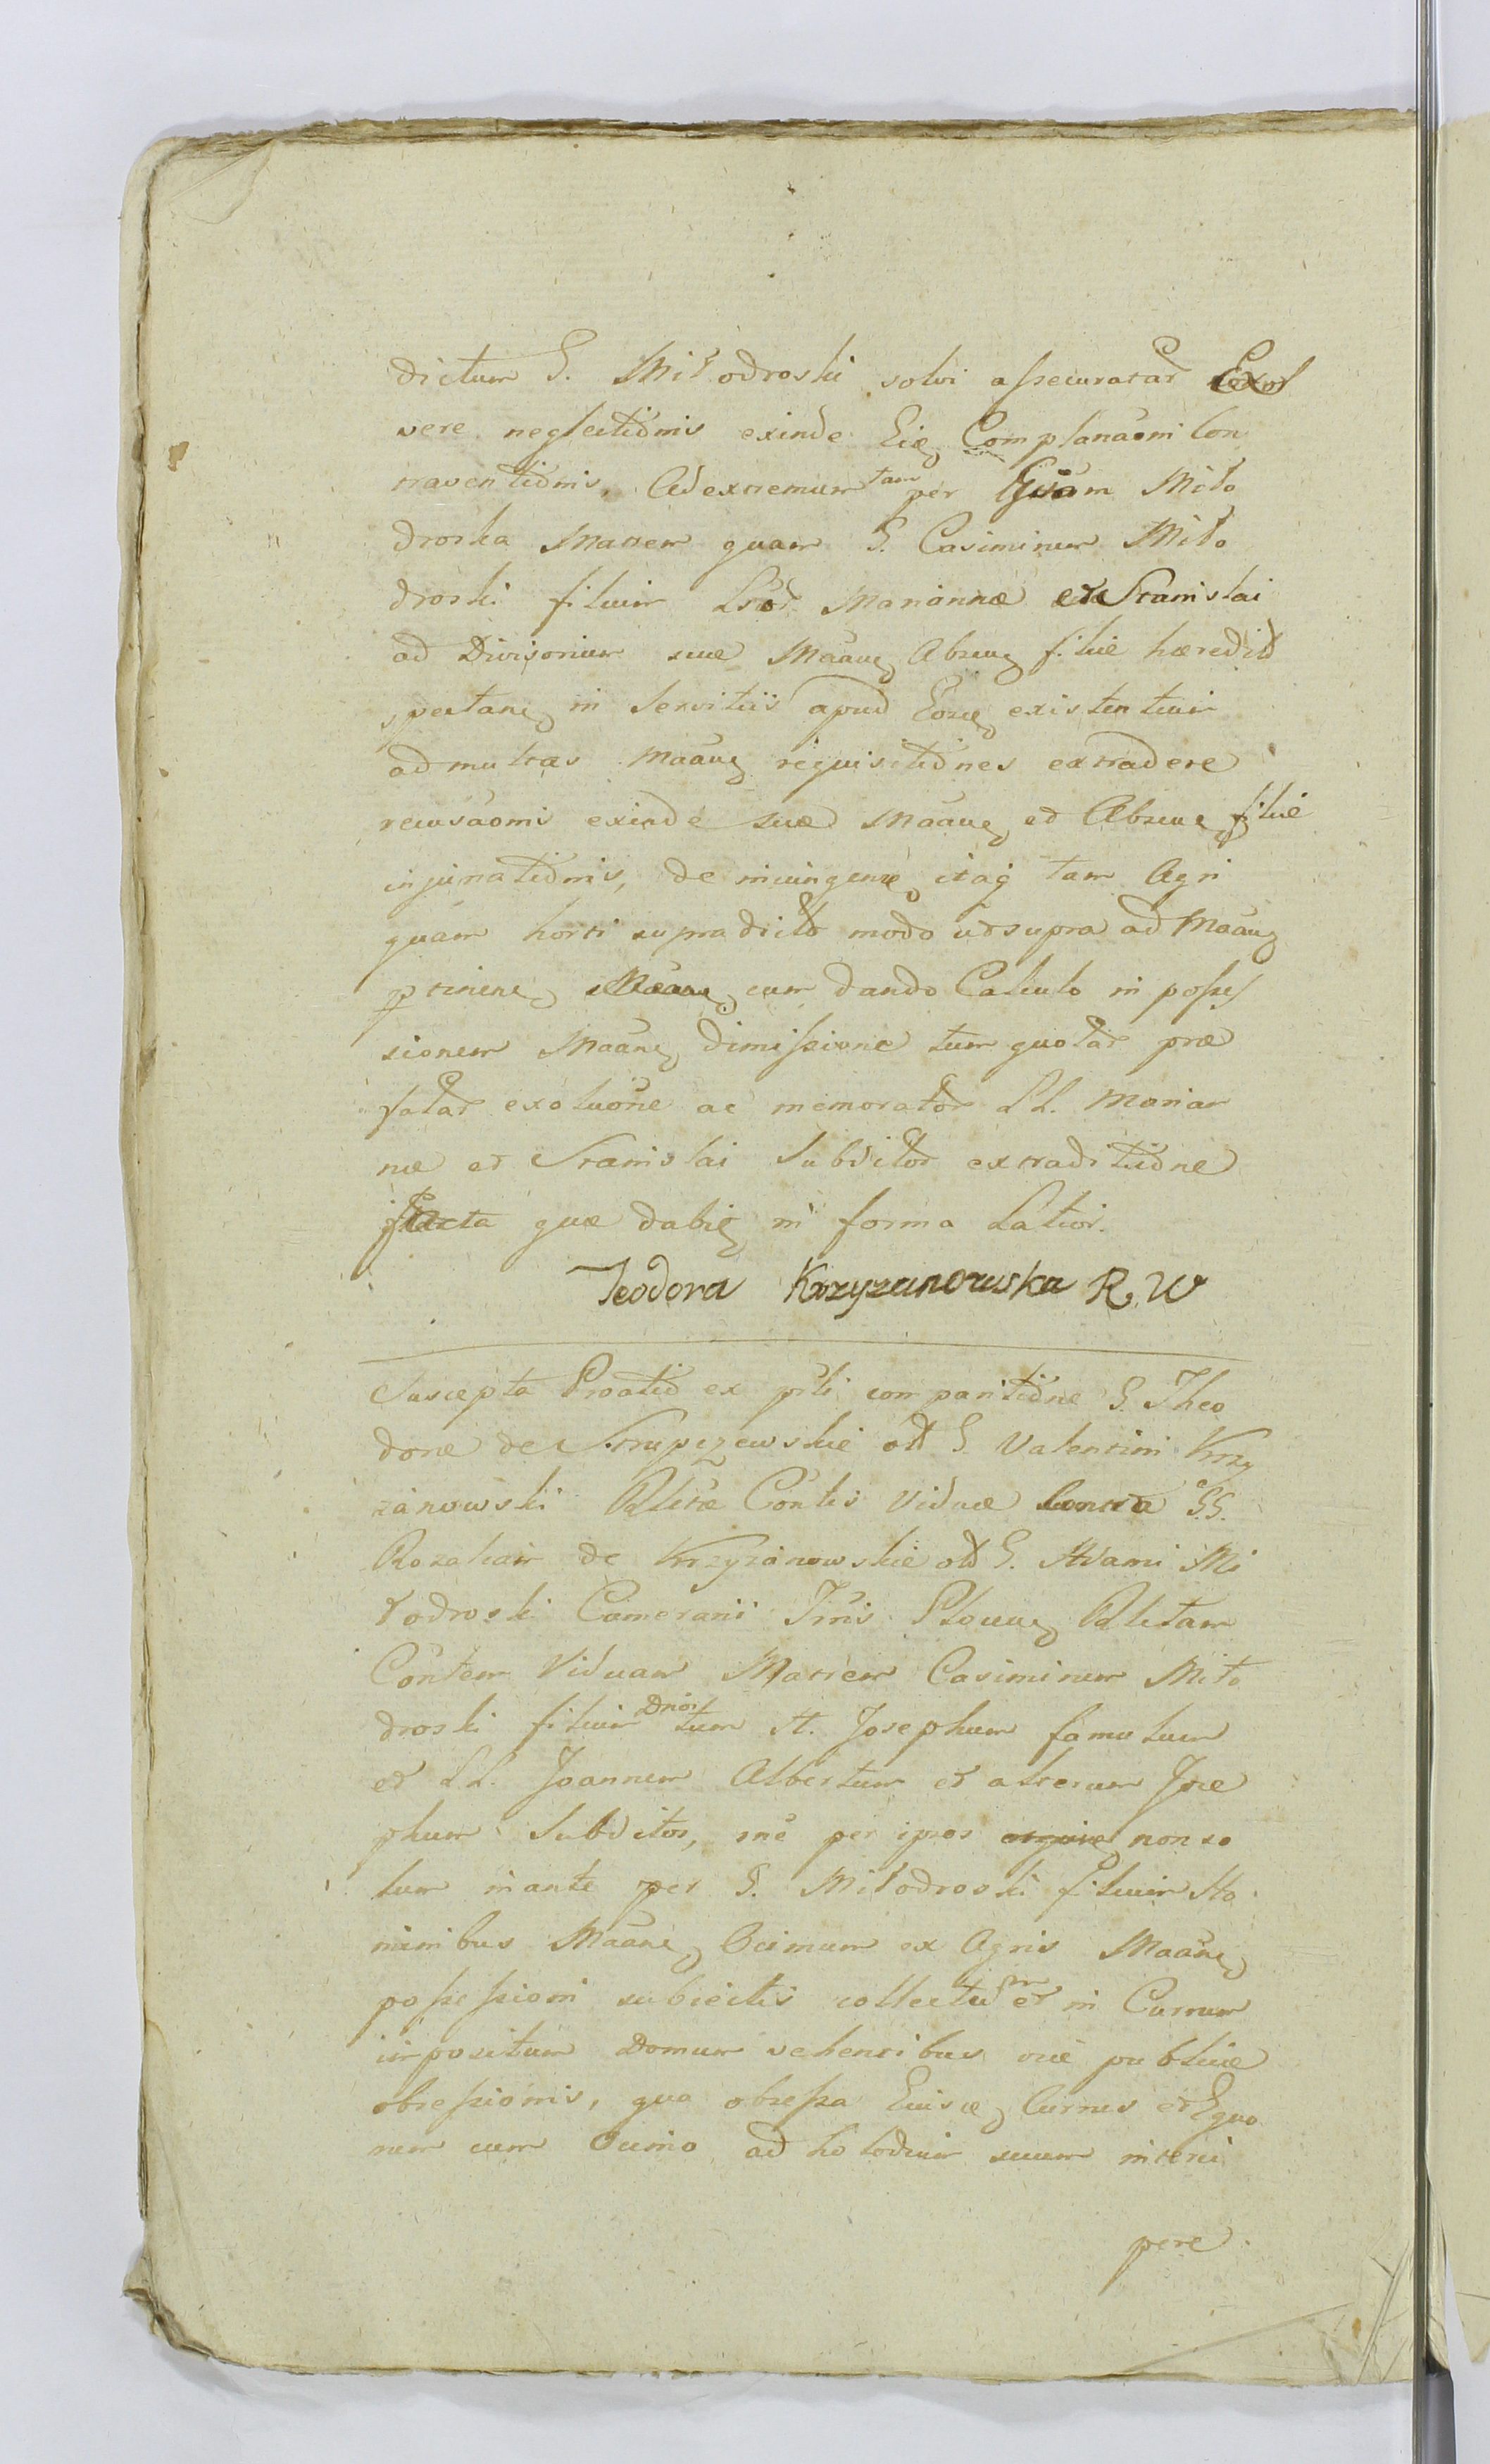 dictum G. Miłodroski solvi assecuratar Exol
vere neglectiōnis exinde Eiq Complanāoni Con
traventiōnis, Ad extremum tam per Gsām Miło
droska Matrem quam G. Casimirum Miło
droski filium Lōr Mariannæ et Stanislai
ad Divisorium suæ Māanq Absenq filiæ hæredit
spectanq in Servitiis apud Eosq existentium
ad multas Māanq requisitiōnes extradere
recusāonis exinde suæ Māanq et Absenq filiæ
injuriatiōnis, de niuingenre itaq tam Agri
quam horti supradicto modo ut supra ad Māanq
ptinenq cum dando Calculo in posses
sionem Māanq dimissione tum quotar præ
fatar exoluōne ac memorator LL. Marian
næ et Stanislai Subditor extraditiōne
facta quæ dabiq in forma Latior.
Teodora Krzyzanowska R. W
Suscepta Proatiō ex psti comparitiōne G. Theo
doræ de Strupczewskie olt G. Valentini Krzy
zanowski Rlictæ Contis Viduæ Contra GG.
Rozaliam de Krzyzanowskie olt G. Adami Mi
łodroski Camerarii Trris Plocenq Rlictam
Contem Viduam Matrem Casimirum Miło
droski filium Dnos tum H. Josephum famulum
et LL. Joannem Albertum et alterum Jose
phum Subditos, rnē per ipsos non so
lum inante per G. Miłodroski filium Ho
minibus Māanq Ocimum ex Agris Māanq
possessioni subiectis collectum et in Currum
impositum Domum vehentibus viæ publicæ
obsessionis, qua obsessa Euisceq Currus et Equo
rum cum Ocimo ad hołodium suum interci
pere